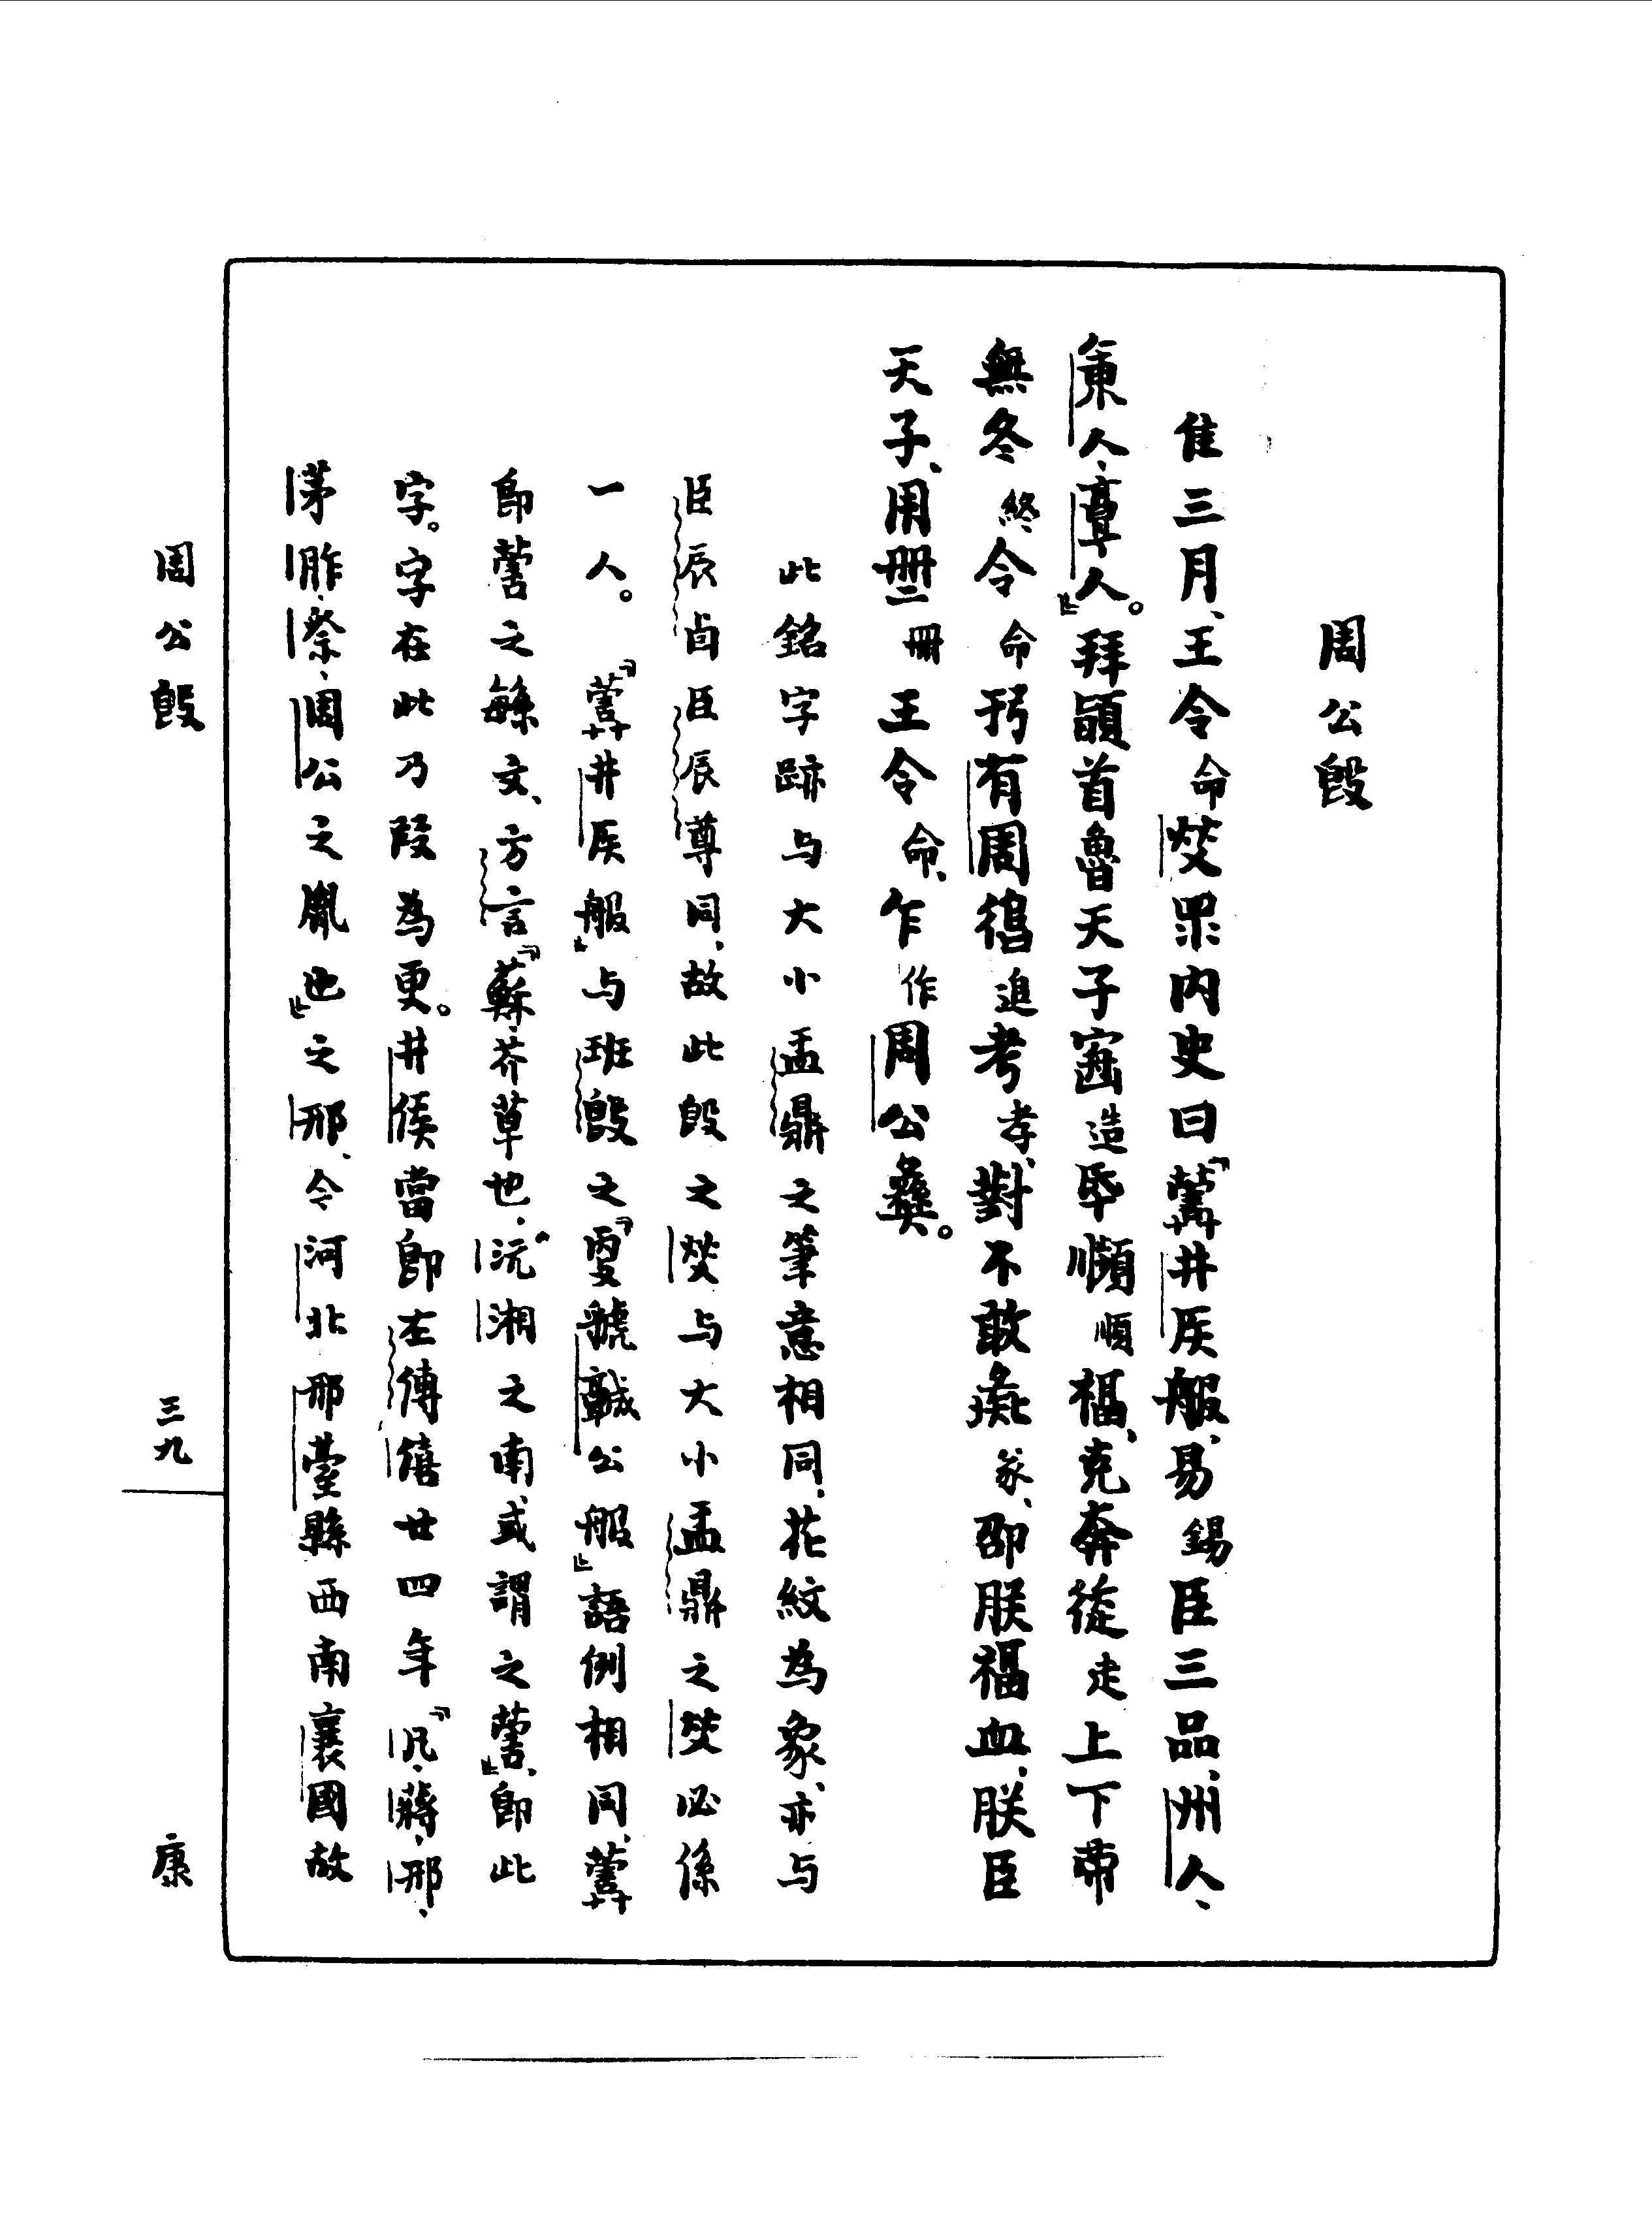 周公𣪘
隹三月、王令命𤇾眔内史曰『井厌服、易錫臣三品、州人、
人、人。』拜䭫首魯天子造厥順福、克奔走上下帝
無冬終令命㺇有周追考孝、對不敢家、邵朕福血、朕臣
天子、用𠕋冊王令命、乍作周公彝。
此銘字跡与大小盂鼎之筆意相同、花紋為象、亦与
臣辰卣臣辰尊同、故此𣪘之𤇾与大小盂鼎之𤇾必係
一人。『井厌服』与班𣪘之『虢公服』語例相同、
即之繇文、方言『蘇、芥草也、沅湘之南、或謂之』、即此
字。字在此乃叚為更。井侯當即左傳僖廿四年『凡、蔣、邢、
茅、胙、祭、周公之胤也』之邢、今河北邢臺縣西南襄國故
周公𣪘
三九
康